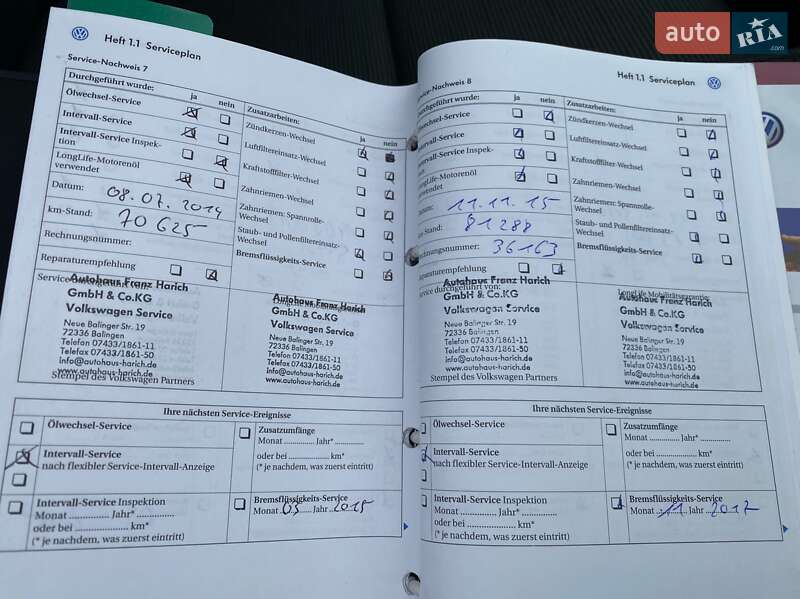 auto RIA .com
Heft 1.1 Serviceplan
Service-Nachweis 7
Durchgeführt wurde:
ja nein
Zusatzarbeiten:
ja nein
Ölwechsel-Service
Zündkerzen-Wechsel
Intervall-Service
Luftfiltereinsatz-Wechsel
Intervall-Service Inspek-
tion
Kraftstofffilter-Wechsel
LongLife-Motorenöl
verwendet
Zahnriemen-Wechsel
Datum: 08.07.2014
Zahnriemen: Spannrolle-
Wechsel
km-Stand: 70625
Staub- und Pollenfiltereinsatz-
Wechsel
Rechnungsnummer:
Bremsflüssigkeits-Service
Reparaturempfehlung
Autohaus Franz Harich
GmbH & Co.KG
Volkswagen Service
Neue Balinger Str. 19
72336 Balingen
Telefon 07433/1861-11
Telefax 07433/1861-50
info@autohaus-harich.de
www.autohaus-harich.de
Stempel des Volkswagen Partners
Autohaus Franz Harich
GmbH & Co.KG
Volkswagen Service
Neue Balinger Str. 19
72336 Balingen
Telefon 07433/1861-11
Telefax 07433/1861-50
info@autohaus-harich.de
www.autohaus-harich.de
Ihre nächsten Service-Ereignisse
Ölwechsel-Service
Zusatzumfänge
Monat Jahr*
oder bei km*
(* je nachdem, was zuerst eintritt)
Intervall-Service
nach flexibler Service-Intervall-Anzeige
Intervall-Service Inspektion
Monat Jahr*
oder bei km*
(* je nachdem, was zuerst eintritt)
Bremsflüssigkeits-Service
Monat 05 Jahr 2015
Heft 1.1 Serviceplan
Service-Nachweis 8
Durchgeführt wurde:
ja nein
Zusatzarbeiten:
ja nein
Ölwechsel-Service
Zündkerzen-Wechsel
Intervall-Service
Luftfiltereinsatz-Wechsel
Intervall-Service Inspek-
tion
Kraftstofffilter-Wechsel
LongLife-Motorenöl
verwendet
Zahnriemen-Wechsel
Datum: 11.11.15
Zahnriemen: Spannrolle-
Wechsel
km-Stand: 81288
Staub- und Pollenfiltereinsatz-
Wechsel
Rechnungsnummer: 36163
Bremsflüssigkeits-Service
Reparaturempfehlung
Service durchgeführt von:
LongLife Mobilitätsgarantie
Autohaus Franz Harich
GmbH & Co.KG
Volkswagen Service
Neue Balinger Str. 19
72336 Balingen
Telefon 07433/1861-11
Telefax 07433/1861-50
info@autohaus-harich.de
www.autohaus-harich.de
Stempel des Volkswagen Partners
Autohaus Franz Harich
GmbH & Co.KG
Volkswagen Service
Neue Balinger Str. 19
72336 Balingen
Telefon 07433/1861-11
Telefax 07433/1861-50
info@autohaus-harich.de
www.autohaus-harich.de
Ihre nächsten Service-Ereignisse
Ölwechsel-Service
Zusatzumfänge
Monat Jahr*
oder bei km*
(* je nachdem, was zuerst eintritt)
Intervall-Service
nach flexibler Service-Intervall-Anzeige
Intervall-Service Inspektion
Monat Jahr*
oder bei km*
(* je nachdem, was zuerst eintritt)
Bremsflüssigkeits-Service
Monat 11 Jahr 2017